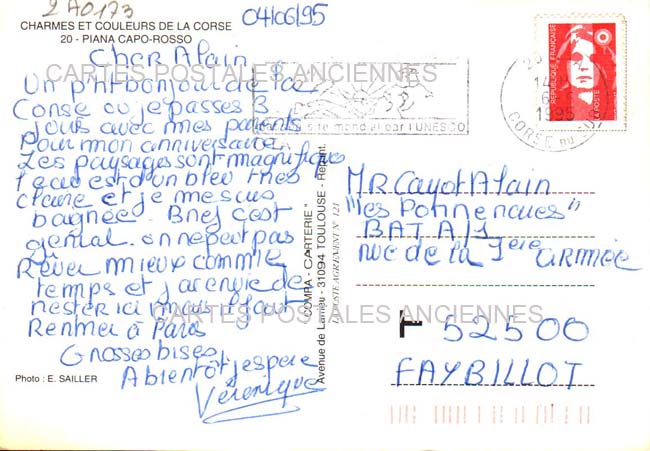 2 A0173
04/06/95
CHARMES ET COULEURS DE LA CORSE
20 - PIANA CAPO-ROSSO
CARTES POSTALES ANCIENNES
Cher Alain
Un p'tit bonjour de la
Corse où je passes 3
jours avec mes parents
Pour mon anniversaire
Les paysages sont magnifiques
l'eau est d'un bleu très
claire et je me suis
baignée. Bref c'est
génial. on ne peut pas
Rêver mieux comme
temps et j'ai envie de
rester ici mais il faut
Rentrer à Paris
Grosses bises
A bientôt j'espère
Véronique
Photo : E. SAILLER
COMPA - CARTERIE"
Avenue de Larrieu - 31094 TOULOUSE - Réprint.
site mondial par l'UNESCO
14
1995
CORSE DU
REPUBLIQUE FRANÇAISE
LA POSTE
MR Cayot Alain
"les Ponnenaues"
BAT A/1
rue de la 1ère ARMÉE
52500
FAYBILLOT
CARTES POSTALES ANCIENNES